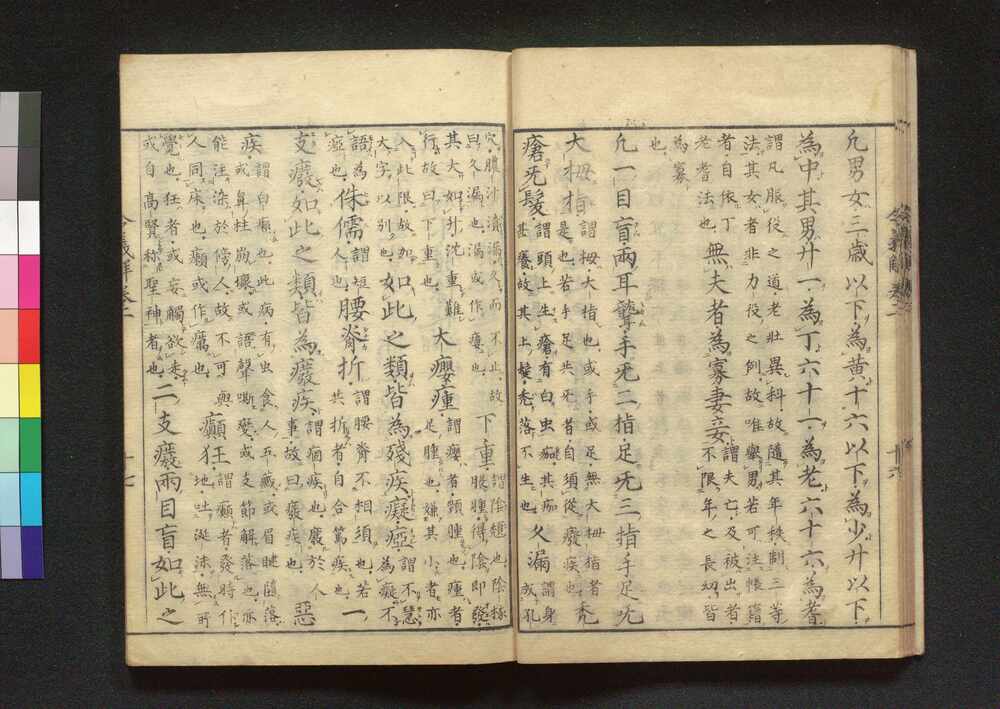 凡男女三歳以下為黄十六以下為少廿以下
為中其男廿一為丁六十一為老六十六為耆
謂凡服役之道老壮異科故隨其年秩制三等
法其女者非力役之例故唯擧男若可注帳籍
者自依丁
老耆法也
無夫者為寡妻妾
謂夫亡及被出者
不限年之長幼皆
為寡
也
凡一目盲兩耳聾手无二指足无三指手足无
大拇指
謂拇大指也或手或足無大拇指者
是也若手足共无者自須從癈疾也
禿
瘡无髮
謂頭上生瘡有白虫痂其痂
甚癢故其上髮禿落不生也
久漏
謂身
或孔
令義解巻二
十六
穴膿汁潺漏久而不止故
曰久漏也漏或作瘻也
下重
謂陰頽也陰核
股腫得陰即發
其大如升沈重難
行故曰下重也
大癭瘇
謂癭者頸腫也瘇者
足腫也嫌其小者亦
入此限故加
大字以別也
如此之類皆為殘疾癡瘂
謂不慧
為癡不
語為
瘂也
侏儒
謂短
人也
腰脊折
謂腰脊不相須也若
共折者自合篤疾也
一
支癈如此之類皆為癈疾
謂痼疾也癈於人
事故曰癈疾也
惡
疾
謂白癩也此病有虫食人五藏或眉睫墮落
或鼻柱崩壞或語聲嘶變或支節解落也亦
能注染於傍人故不可與
人同床也癩或作癘也
癲狂
謂癲者發時仆
地吐涎沫無所
覺也狂者或妄觸欲走
或自高賢称聖神者也
二支癈兩目盲如此之
令義解巻二
十七